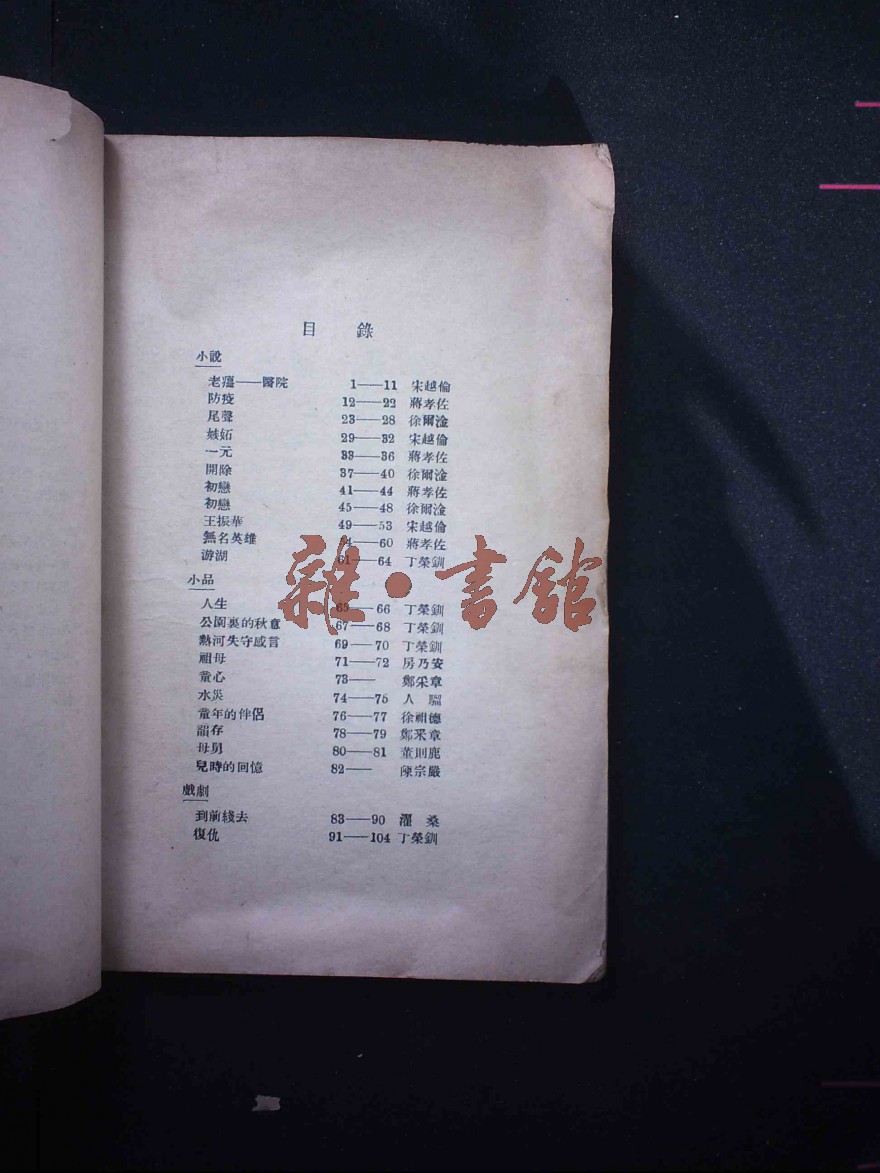 目 錄
小說
老瘟——醫院 1——11 宋越倫
防疫 12——22 蔣孝佐
尾聲 23——28 徐爾淦
嫉妬 29——32 宋越倫
一元 33——36 蔣孝佐
開除 37——40 徐爾淦
初戀 41——44 蔣孝佐
初戀 45——48 徐爾淦
王振華 49——53 宋越倫
無名英雄 4——60 蔣孝佐
游湖 61——64 丁榮釧
小品
人生 65——66 丁榮釧
公園裏的秋意 67——68 丁榮釧
熱河失守感言 69——70 丁榮釧
祖母 71——72 房乃安
童心 73—— 鄭采章
水災 74——75 人
童年的伴侶 76——77 徐祖德
存 78——79 鄭采章
母舅 80——81 董則鹿
兒時的回憶 82—— 陳宗嚴
戲劇
到前綫去 83——90 桑
復仇 91——104 丁榮釧
雜·書館